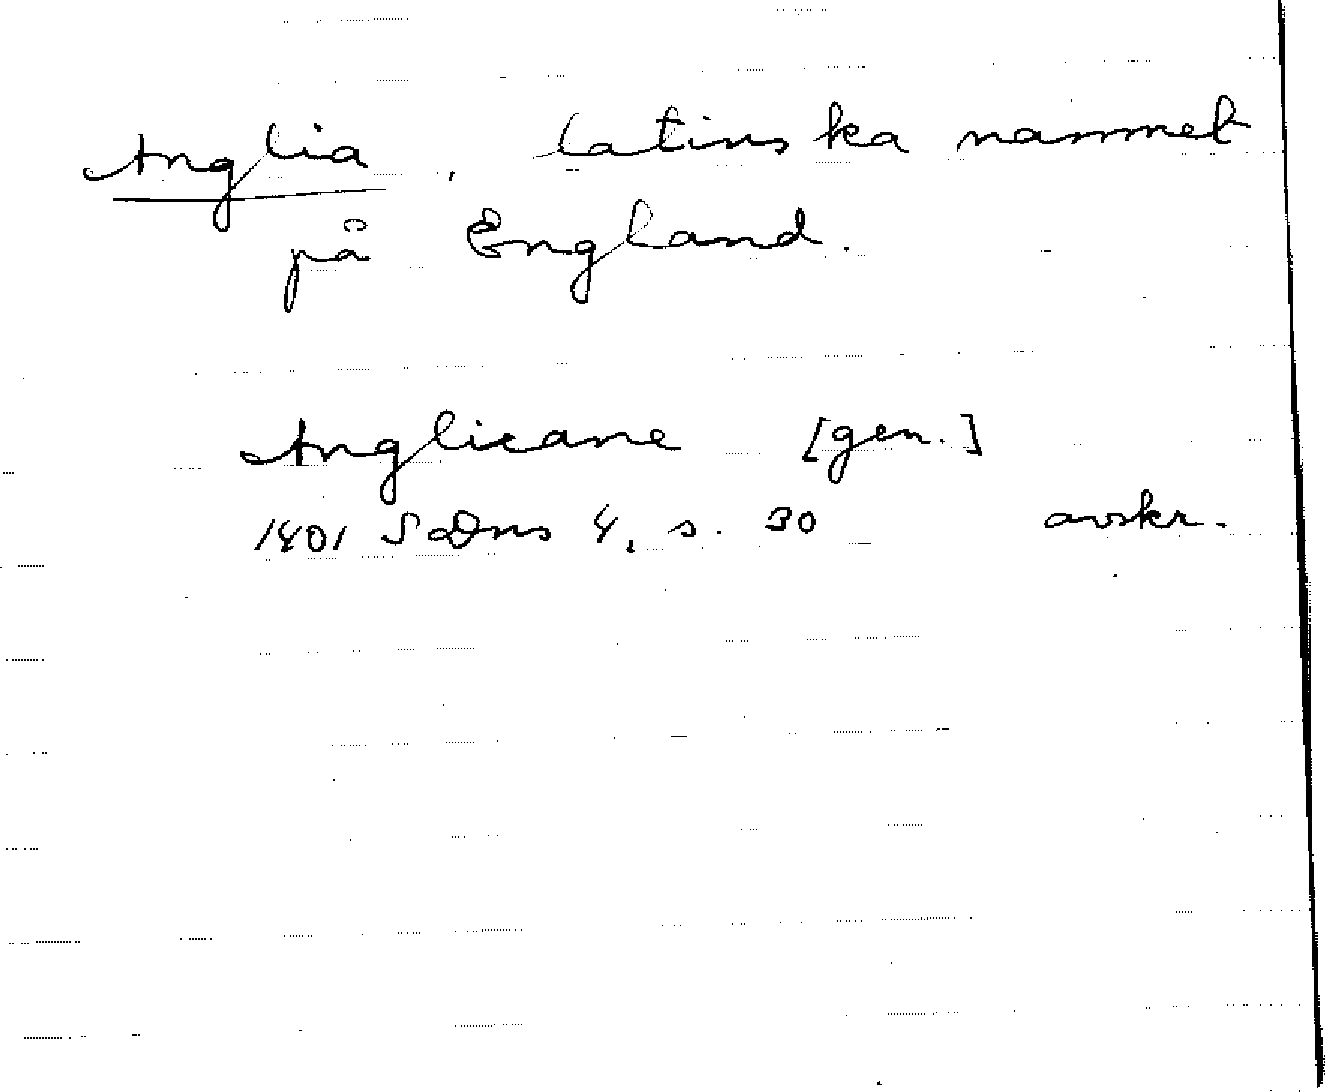 Anglia, latinska namnet
på England.
Anglicane [gen.]
1401 SoDns 4, s. 30 avskr.